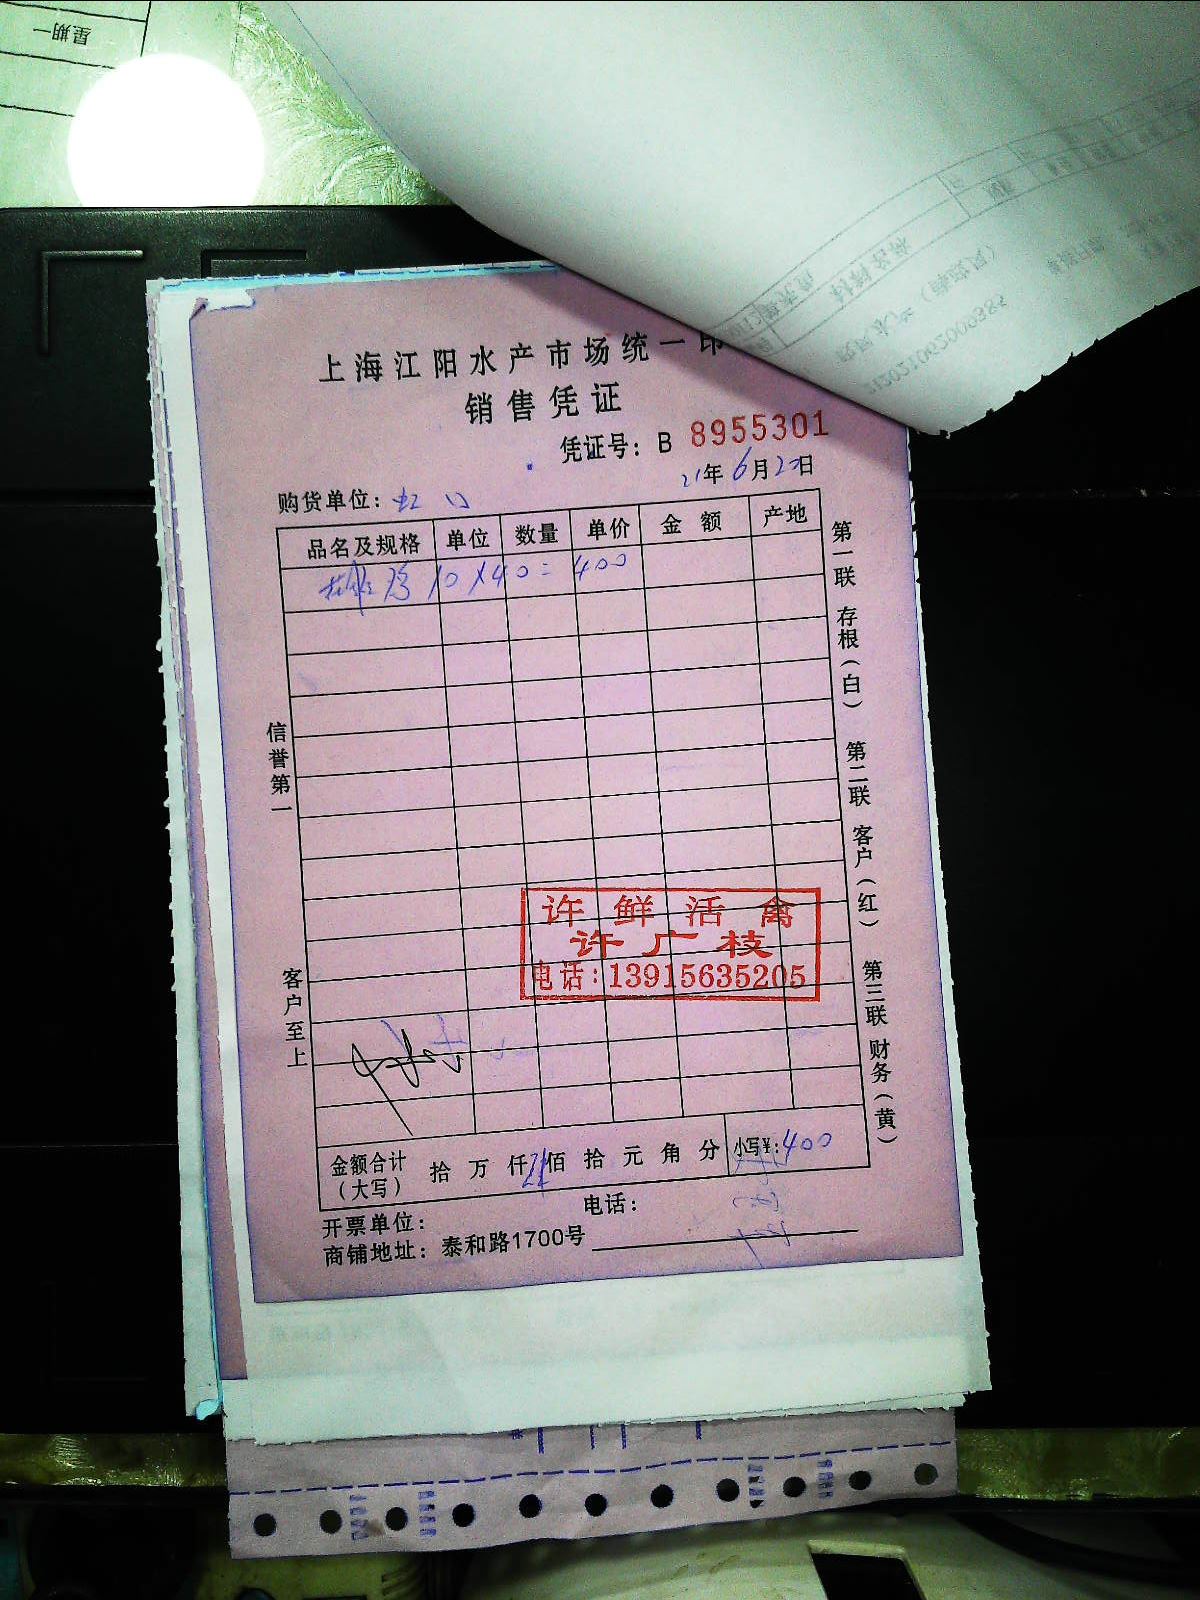 星期一
上海江阳水产市场统一印
销售凭证
凭证号：B 8955301
21年6月20日
购货单位：虹口
品名及规格 单位 数量 单价 金额 产地
10×40=400
信誉第一
客户至上
第一联 存根（白） 第二联 客户（红） 第三联 财务（黄）
许鲜活禽
许广枝
电话：13915635205
金额合计（大写） 拾 万 仟 佰 拾 元 角 分 小写¥：400
开票单位： 电话：
商铺地址：泰和路1700号